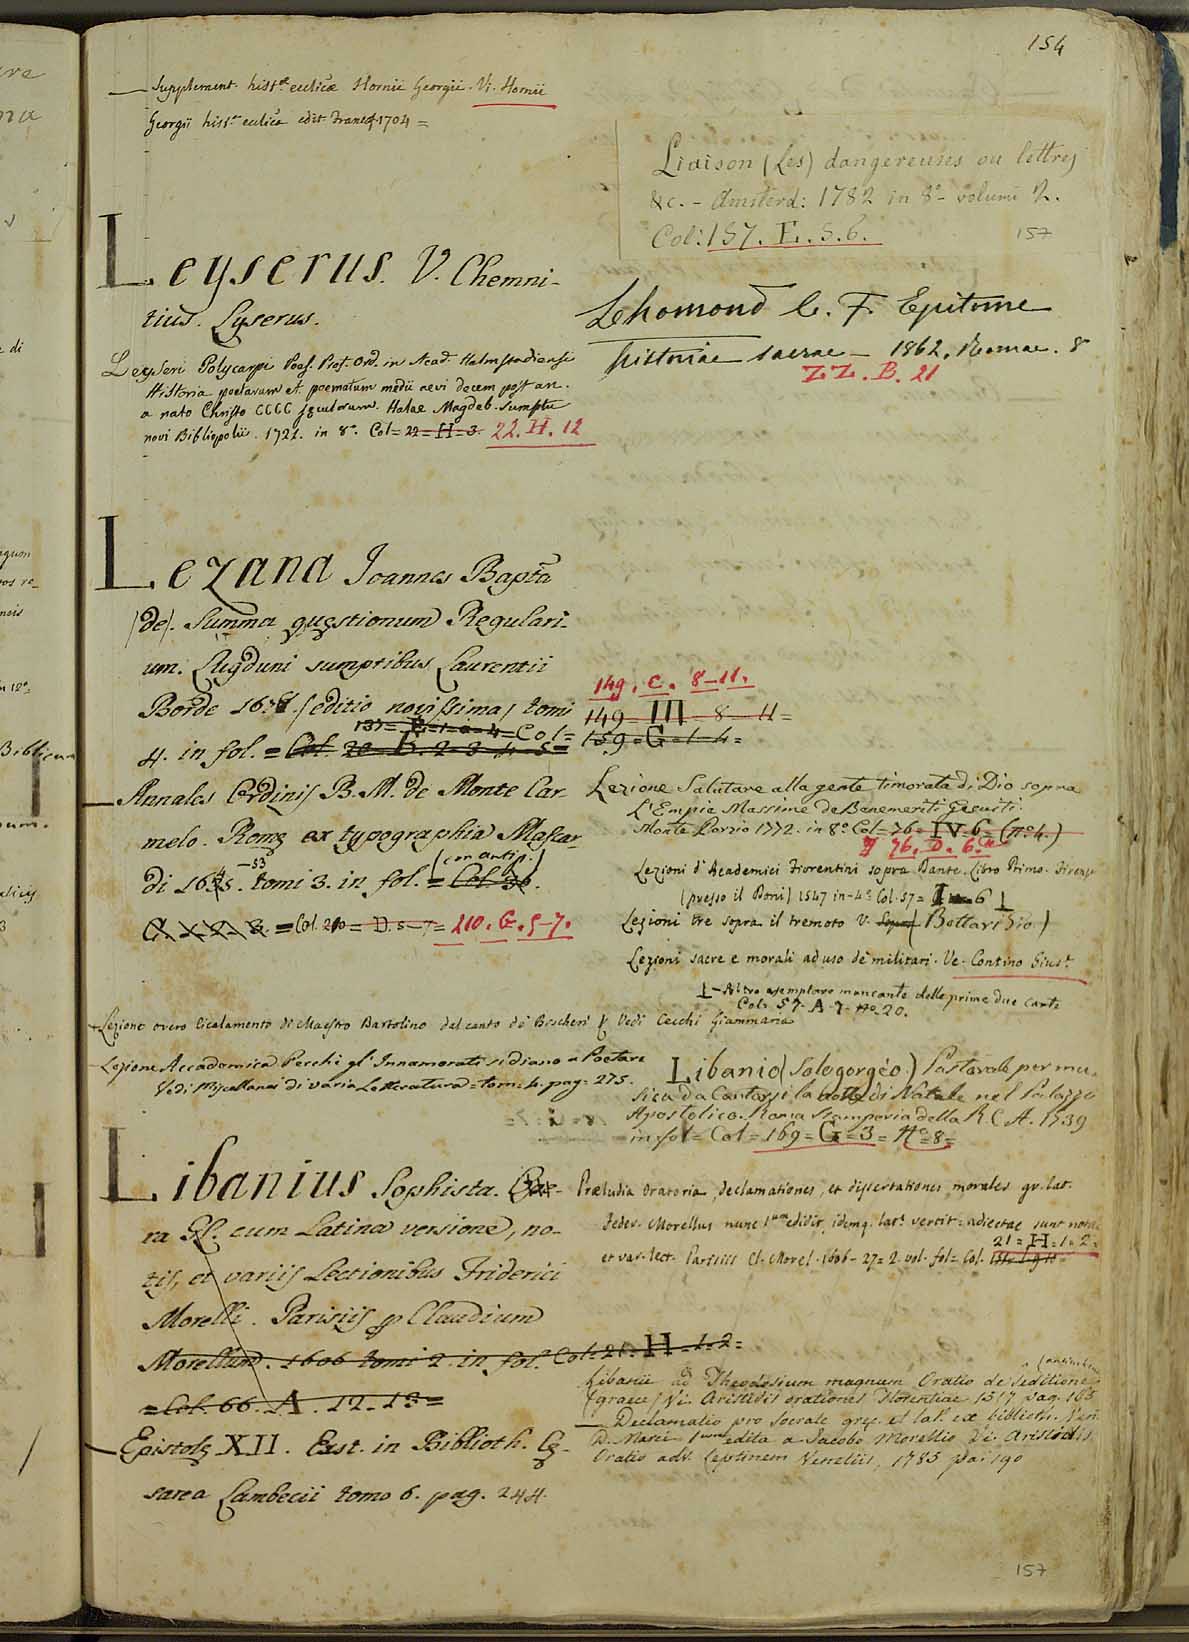 154
— Supplement. histæ. ecclicæ Hornii Georgii. Vi. Hornii
Georgii hist. ecclica edit Francof 1704 =
Leyserus. V. Chemni-
tius. Lyserus.
Leyseri Polycarpi Poes. Prof. Ord. in Acad. Halmstadiensi
Historia poetarum et poematum medii aevi decem post an.
a nato Christo CCCC sęculorum. Halae Magdeb. sumptu
novi Bibliopolii. 1721. in 8º. Col = 22 = H = 3. 22. H. 12
Lezana Joannes Bapta
(de). Summa quęstionum Regulari-
um. Lugduni sumptibus Laurentii
Borde 1678. (editio novissima) tomi
137 = B = 1-a-4 = Col =
4. in fol. = Col. 20 = B. 2-3-4-5 =
— Annales Ordinis B. M. de Monte Car-
melo. Romę ex typographia Mascar-
di 1645. -53 tomi 3. in fol. = Col. 36. (con antip.)
G. 1. 2. 3. = Col. 210 = D. 5-7 = 210. G. 5-7.
Lezione overo Cicalamento di Maestro Bartolino dal canto de' Bischeri &c Vedi Cecchi Giammaria
Lezione Accademica Perchè gl'Innamorati si diano a Poetare
Vedi Miscellanea di varia Letteratura = tom. 4. pag. 275.
Libanius Sophista. Ope-
ra Gr. cum Latina versione, no-
tis, et variis Lectionibus Friderici
Morelli. Parisiis p Claudium
Morellum. 1606 tomi 2. in fol. Col = 21. H. 1-2 =
= Col. 66. A. 12-13 =
— Epistolę XII. Exst. in Biblioth. Cę-
sarea Lambecii tomo 6. pag. 244.
Liaison (Les) dangereuses ou lettres
&c. - Amsterd: 1782 in 8º - volumi 2.
Col: 157. E. 5. 6. 157
Lhomond C. F. Epitome
historiae sacrae — 1862. Romae. 8
ZZ. B. 21
149. C. 8-11.
149 = III = 8 - 11 =
159 = G = 1-4 =
Lezione Salutare alla gente timorata di Dio sopra
l'Empie Massime de Benemeriti Gesuiti.
Monte Porzio 1772. in 8º Col = 76 = IV. 6 = (nº 4.)
76. D. 6.
Lezioni d'Academici Fiorentini sopra Dante. Libro Primo. Firenze
(presso il Doni) 1547 in-4º Col. 57 = 6
Lezioni tre sopra il tremoto V. (Bottari Gio.)
Lezioni sacre e morali ad uso de' militari. Ve. Contino Giust.
Altro esemplare mancante delle prime due carte
Col. 57. A. 7. nº. 20.
Libanio (Sologorgèo) Pastorale per mu-
sica da Cantarsi la notte di Natale nel Palazzo
Apostolico. Roma Stamperia della R. C. A. 1739
in fol = Col = 169 = G = 3 = Nº = 8 =
Præludia oratoria, declamationes, et dissertationes morales gr. lat.
Feder. Morellus nunc 1um edidit, idemq. latè vertit = adiectae sunt notae
21 = H = 1-2 =
et var. lect. Parisiis Cl. Morel. 1606-27 = 2. vol. fol = Col.
Libanii ad Theodosium magnum Oratio de seditione
(graece) Vi. Aristidis orationes Florentiae 1517 pag. 165
— Declamatio pro Socrate gręc. et lat. ex biblioth. Ven.
D. Marci 1um edita a Jacobo Morellio Vi. Aristidis
Oratio adv. Leptinem Venetiis, 1785 pag. 190
157